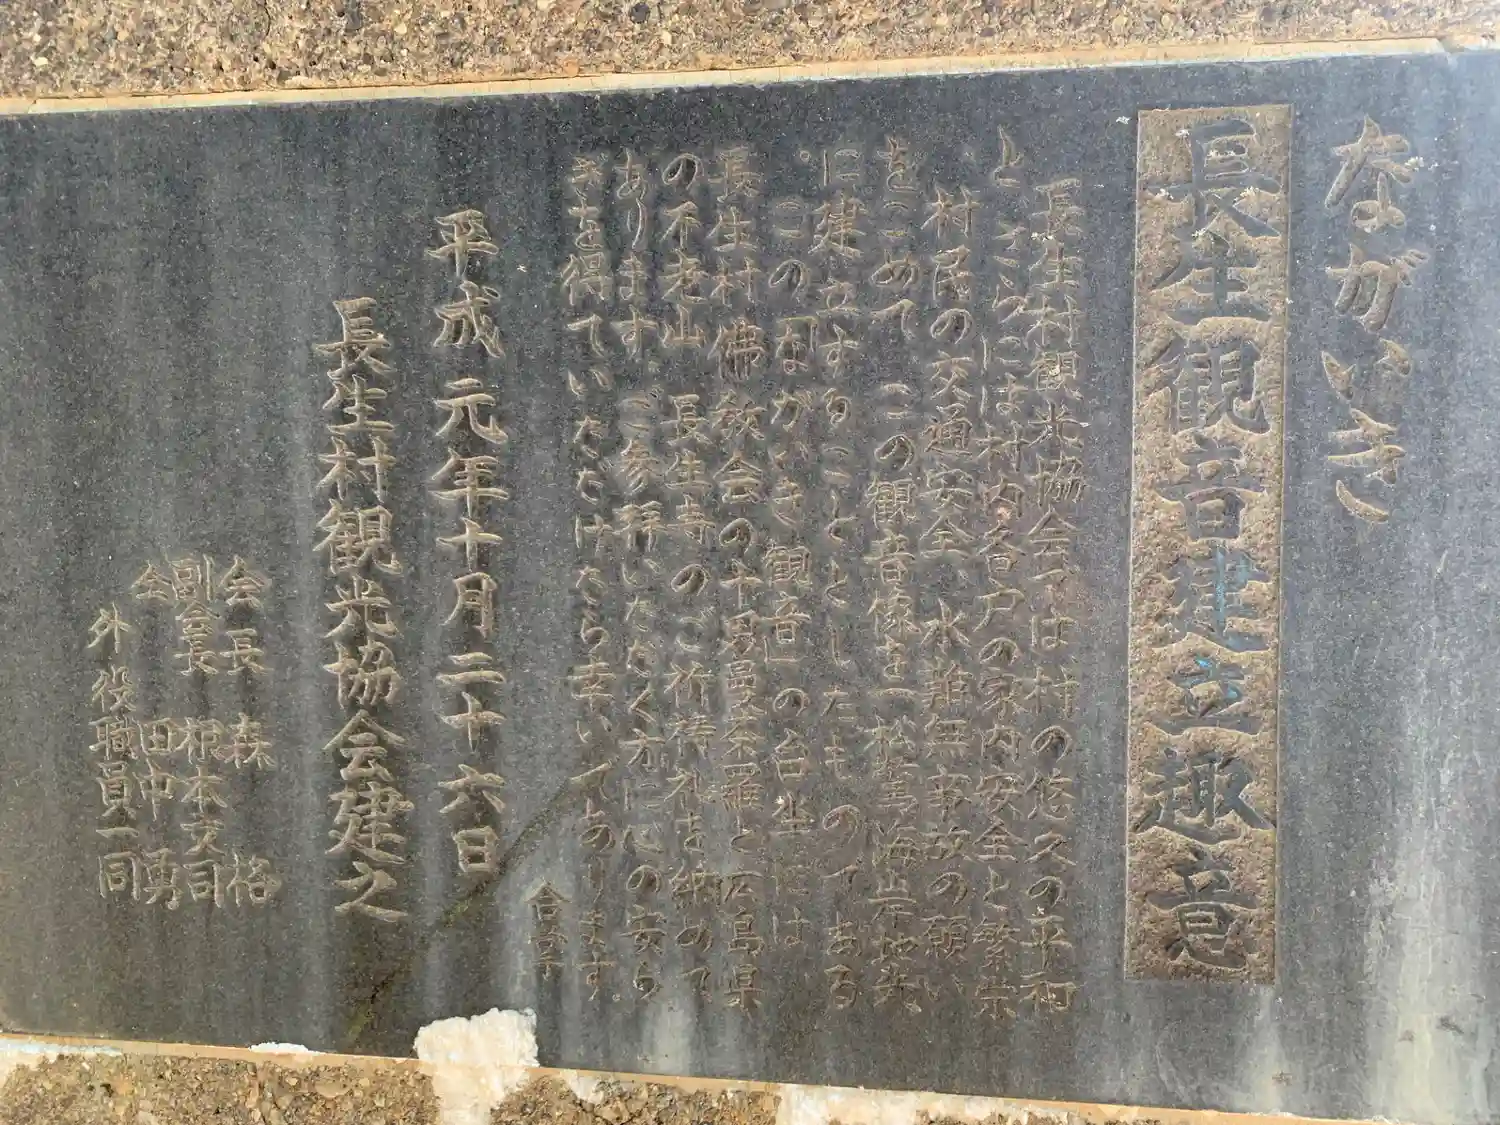 ながいき
長生観音建立趣意
長生村観光協会では、村の悠久の平和
とさらには村内各戸の家内安全と繁栄
、村民の交通安全、水難無事故の願い
をこめて、この観音像を一松驚海岸地先
に建立することとしたものであります
。この「ながいき観音」の台座には
長生村佛教会の十易曼荼羅と広島県
の不老山、長生寺のご祈祷札を納めて
あります。ご参拝いただく方に心の安ら
ぎを得ていただけたら幸いであります。
合掌
平成元年十月二十六日
長生村観光協会建之
会長 森 格
副会長 根本文司
仝 田中 勇
外役職員一同